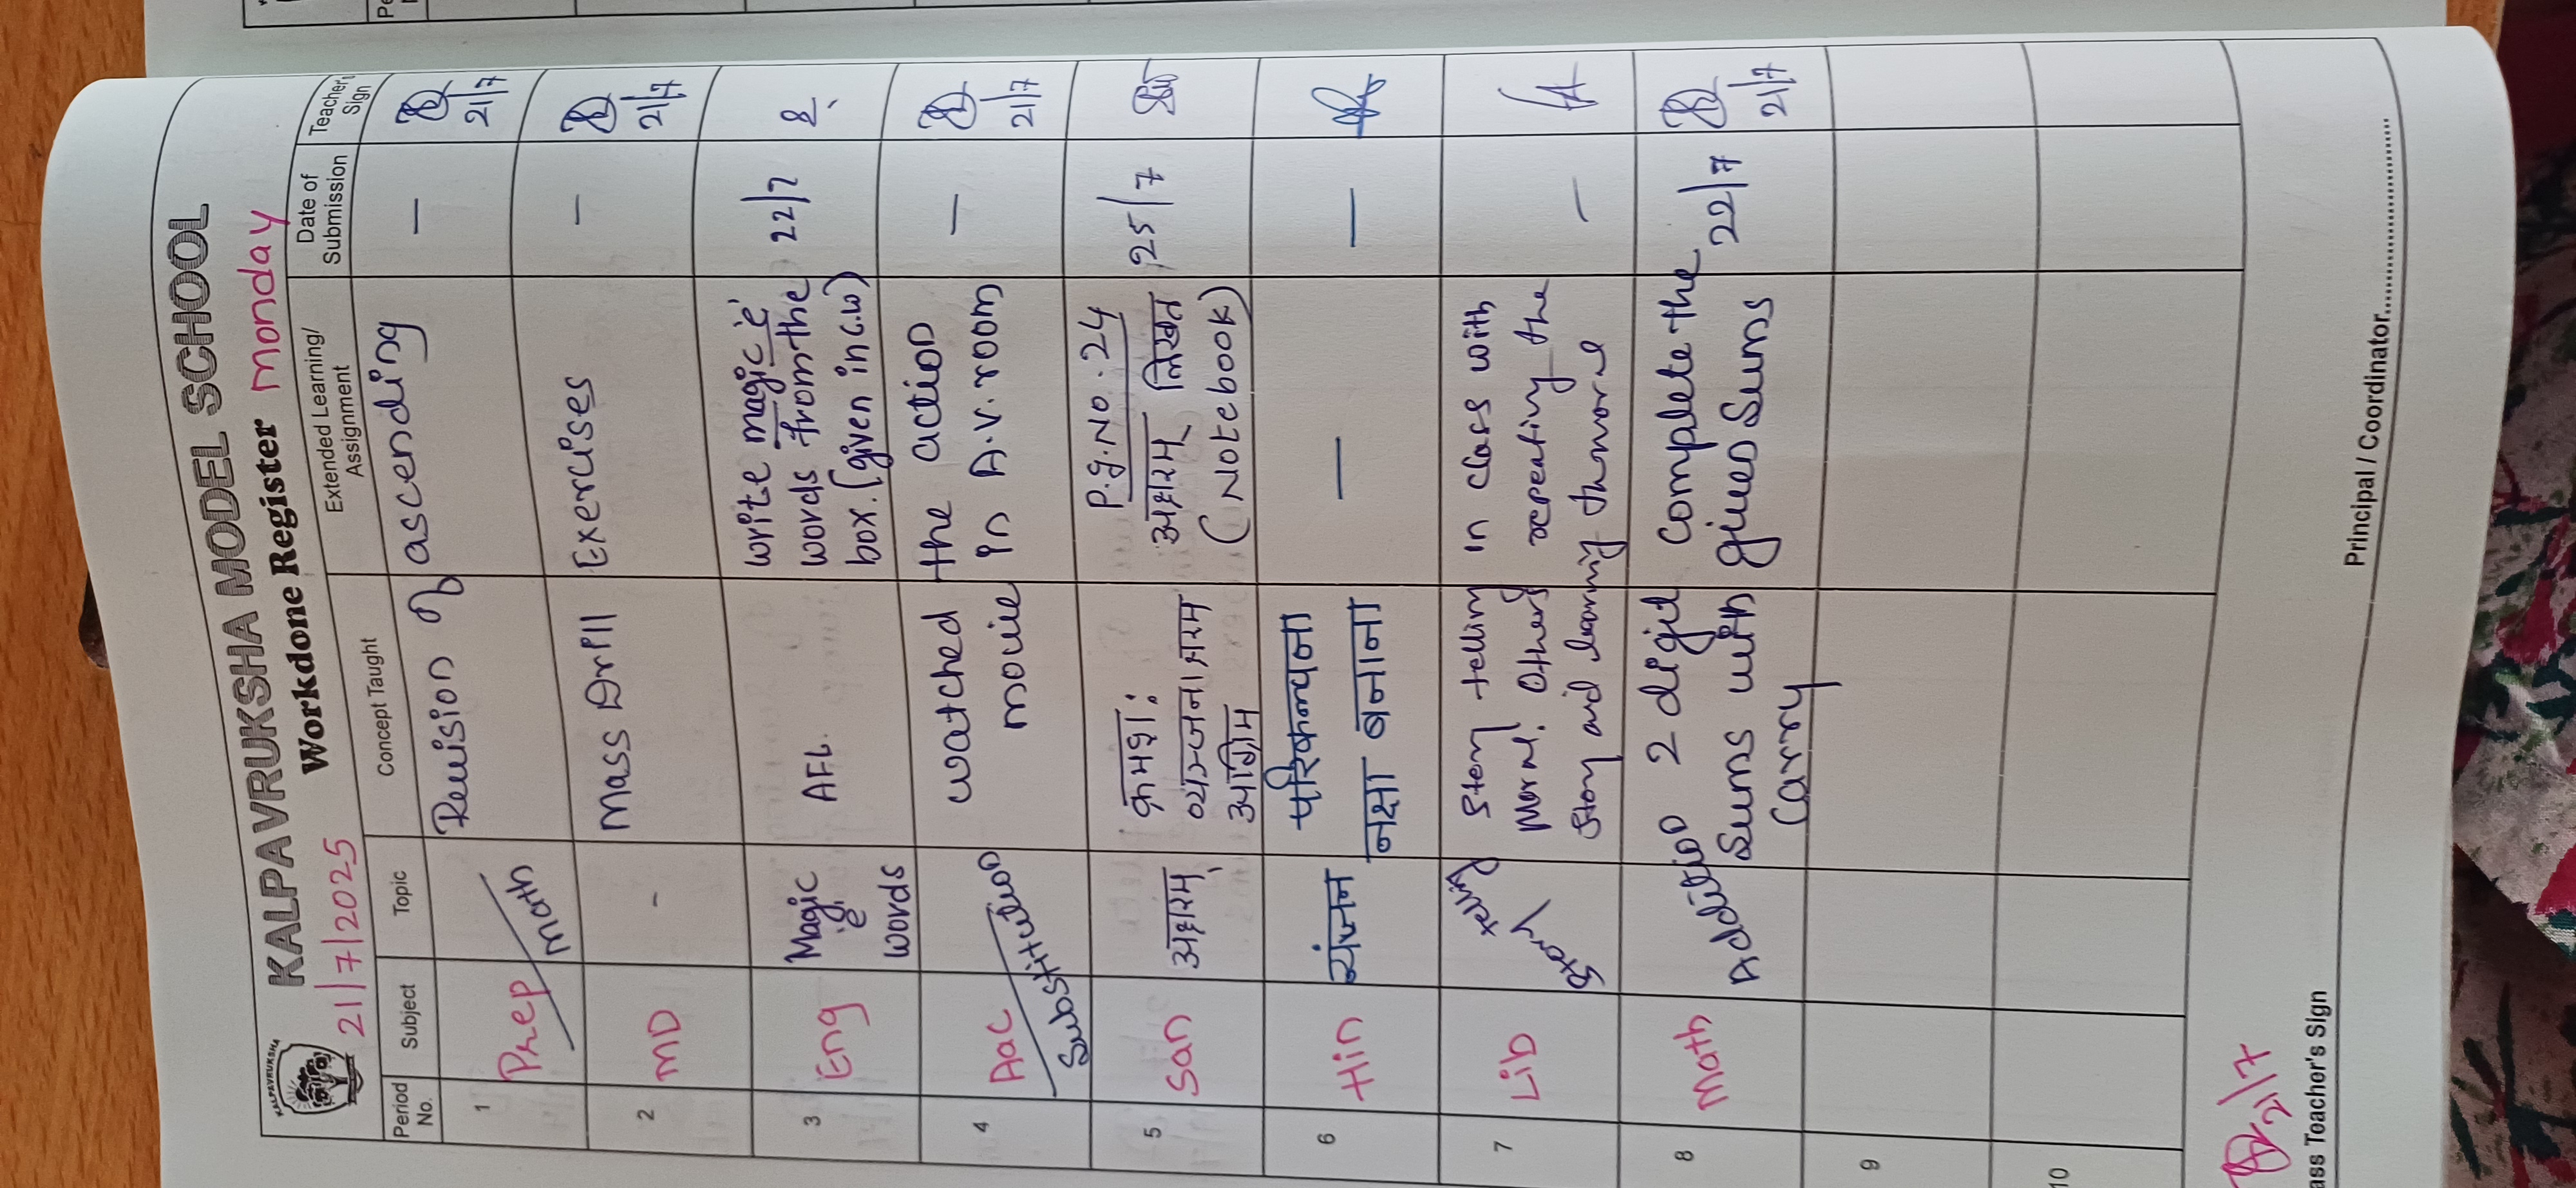 KALPAVRUKSHA
KALPAVRUKSHA MODEL SCHOOL
21/7/2025 Workdone Register Monday
Period No. Subject Topic Concept Taught Extended Learning/ Assignment Date of Submission Teacher's Sign
1 Prep/Math Revision of ascending — 21/7
2 MD - Mass Drill Exercises — 21/7
3 Eng Magic 'e' words AFL. write magic 'e'
words from the
box. (given in C.W) 22/7
4 Aac/Substitution watched the action
movie in A.V. room — 21/7
5 San अक्षरम् क्रमशः P.g.No.24
व्यञ्जनाक्षरम् अक्षरम् लिखत 25/7
(Notebook)
6 Hin व्यंजन परिकल्पना — —
नक्षा बनाना
7 Lib Story telling Story telling in class with
moral. Others repeating the
story and learning the moral —
8 Math Addition 2 digit complete the
sums with given sums 22/7 21/7
carry
9
10
21/7
ass Teacher's Sign Principal / Coordinator